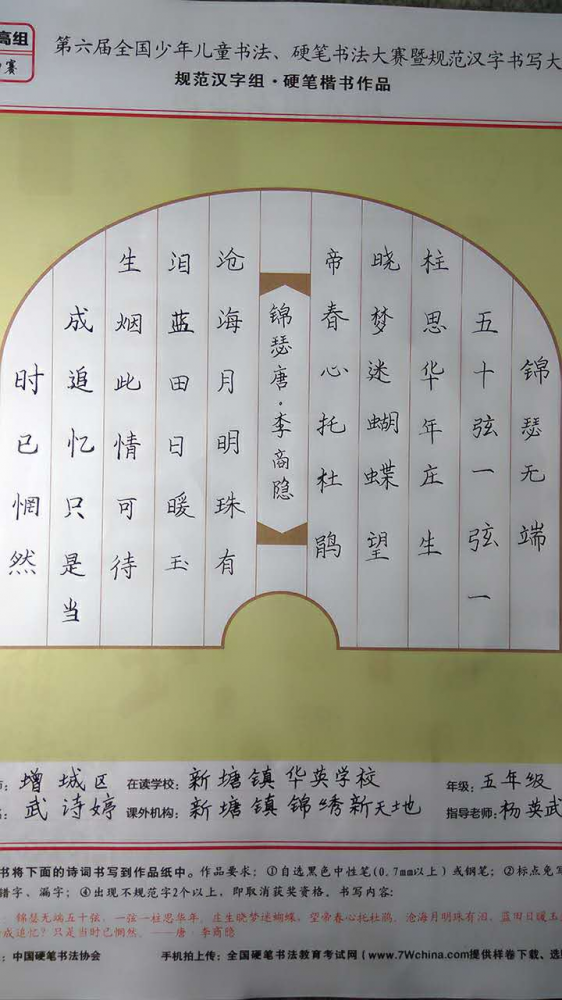 高组
赛
第六届全国少年儿童书法、硬笔书法大赛暨规范汉字书写大
规范汉字组·硬笔楷书作品
锦瑟无端
五十弦一弦一
柱思华年庄生
晓梦迷蝴蝶望
帝春心托杜鹃
锦瑟唐·李商隐
沧海月明珠有
泪蓝田日暖玉
生烟此情可待
成追忆只是当
时已惘然
增城区 在读学校: 新塘镇华英学校 年级: 五年级
武诗婷 课外机构: 新塘镇锦绣新天地 指导老师: 杨英武
书将下面的诗词书写到作品纸中。作品要求:①自选黑色中性笔(0.7mm以上)或钢笔;②标点免写
错字、漏字;④出现不规范字2个以上,即取消获奖资格。书写内容:
锦瑟无端五十弦,一弦一柱思华年。庄生晓梦迷蝴蝶,望帝春心托杜鹃。沧海月明珠有泪,蓝田日暖玉
成追忆?只是当时已惘然。——唐·李商隐
:中国硬笔书法协会 手机拍上传:全国硬笔书法教育考试网(www.7Wchina.com提供样卷下载、选